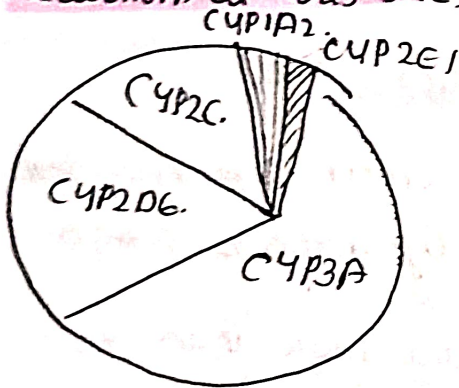 CYP1A2.
CYP2E1
CYP2C.
CYP2D6.
CYP3A